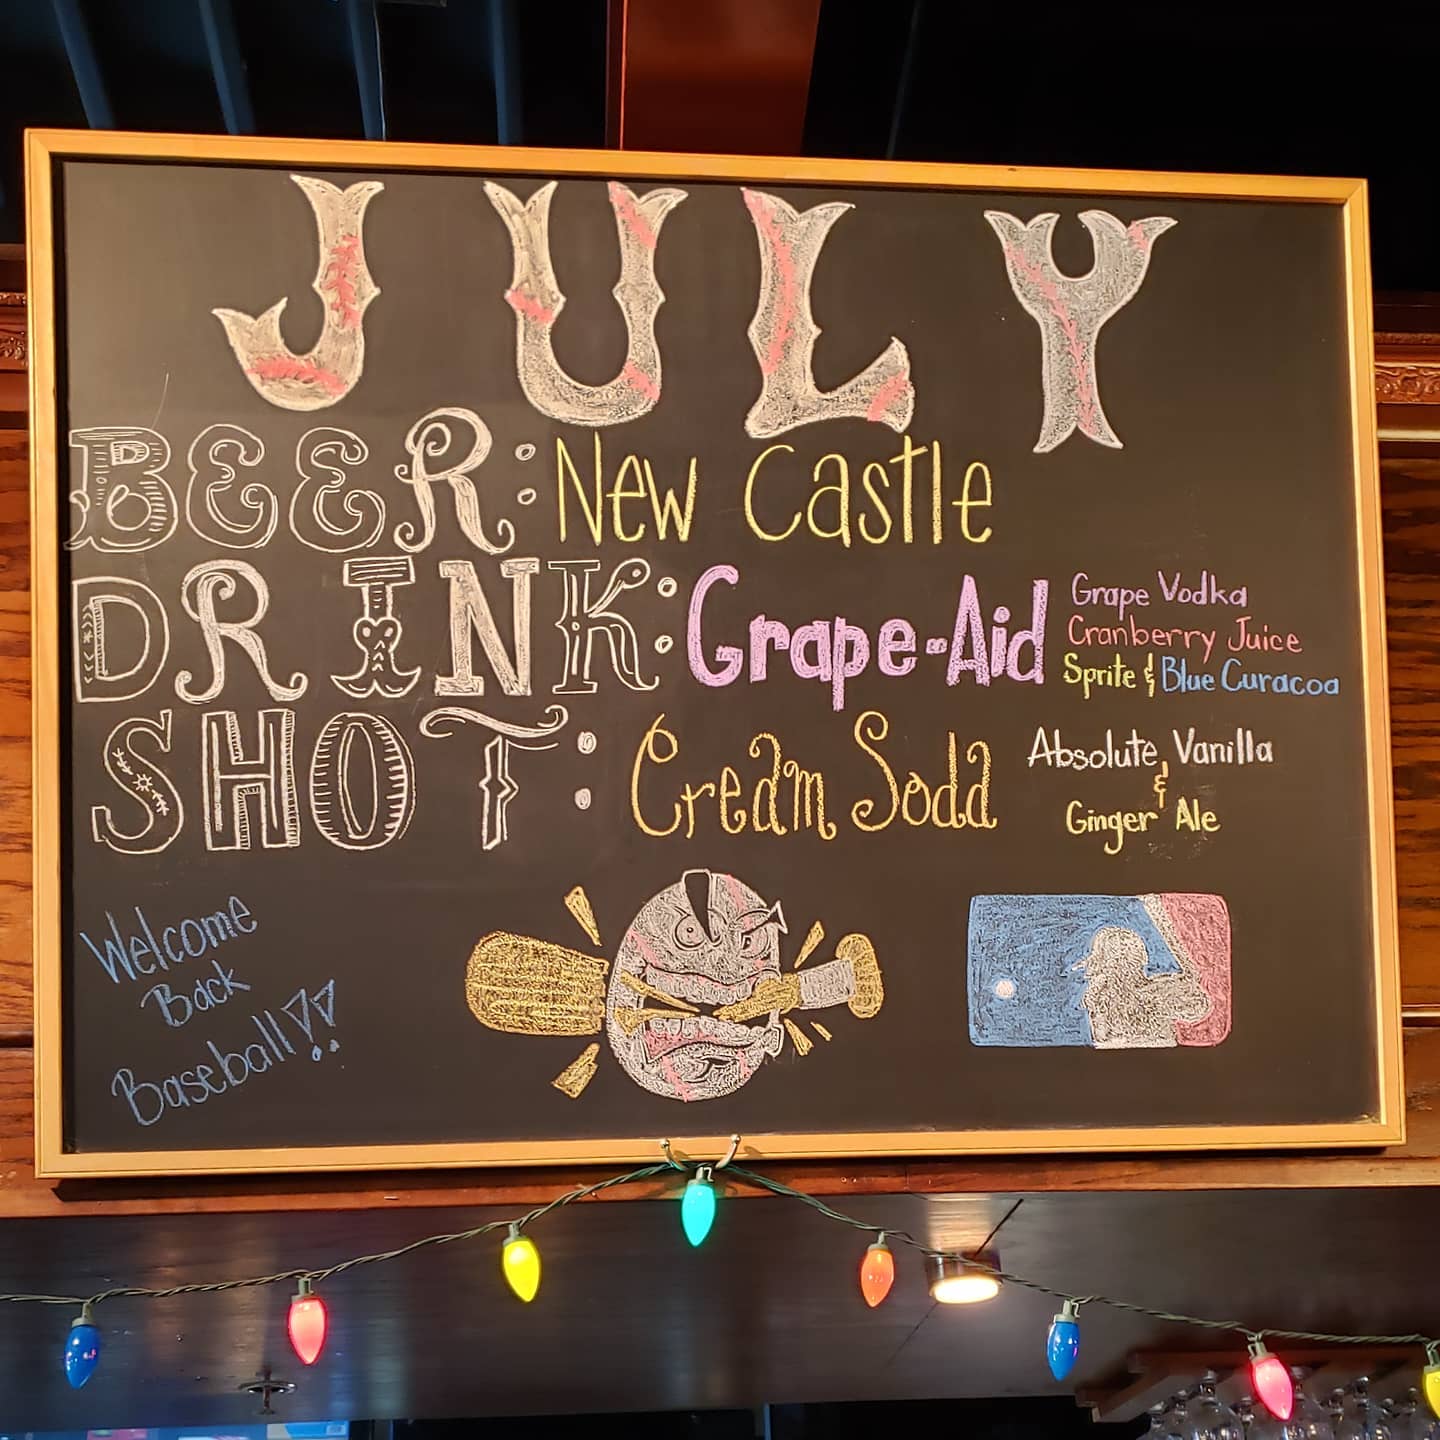 JULY
BEER: New Castle
DRINK: Grape-Aid
Grape Vodka
Cranberry Juice
Sprite & Blue Curacoa
SHOT: Cream Soda
Absolute Vanilla
&
Ginger Ale
Welcome
Back
Baseball!!